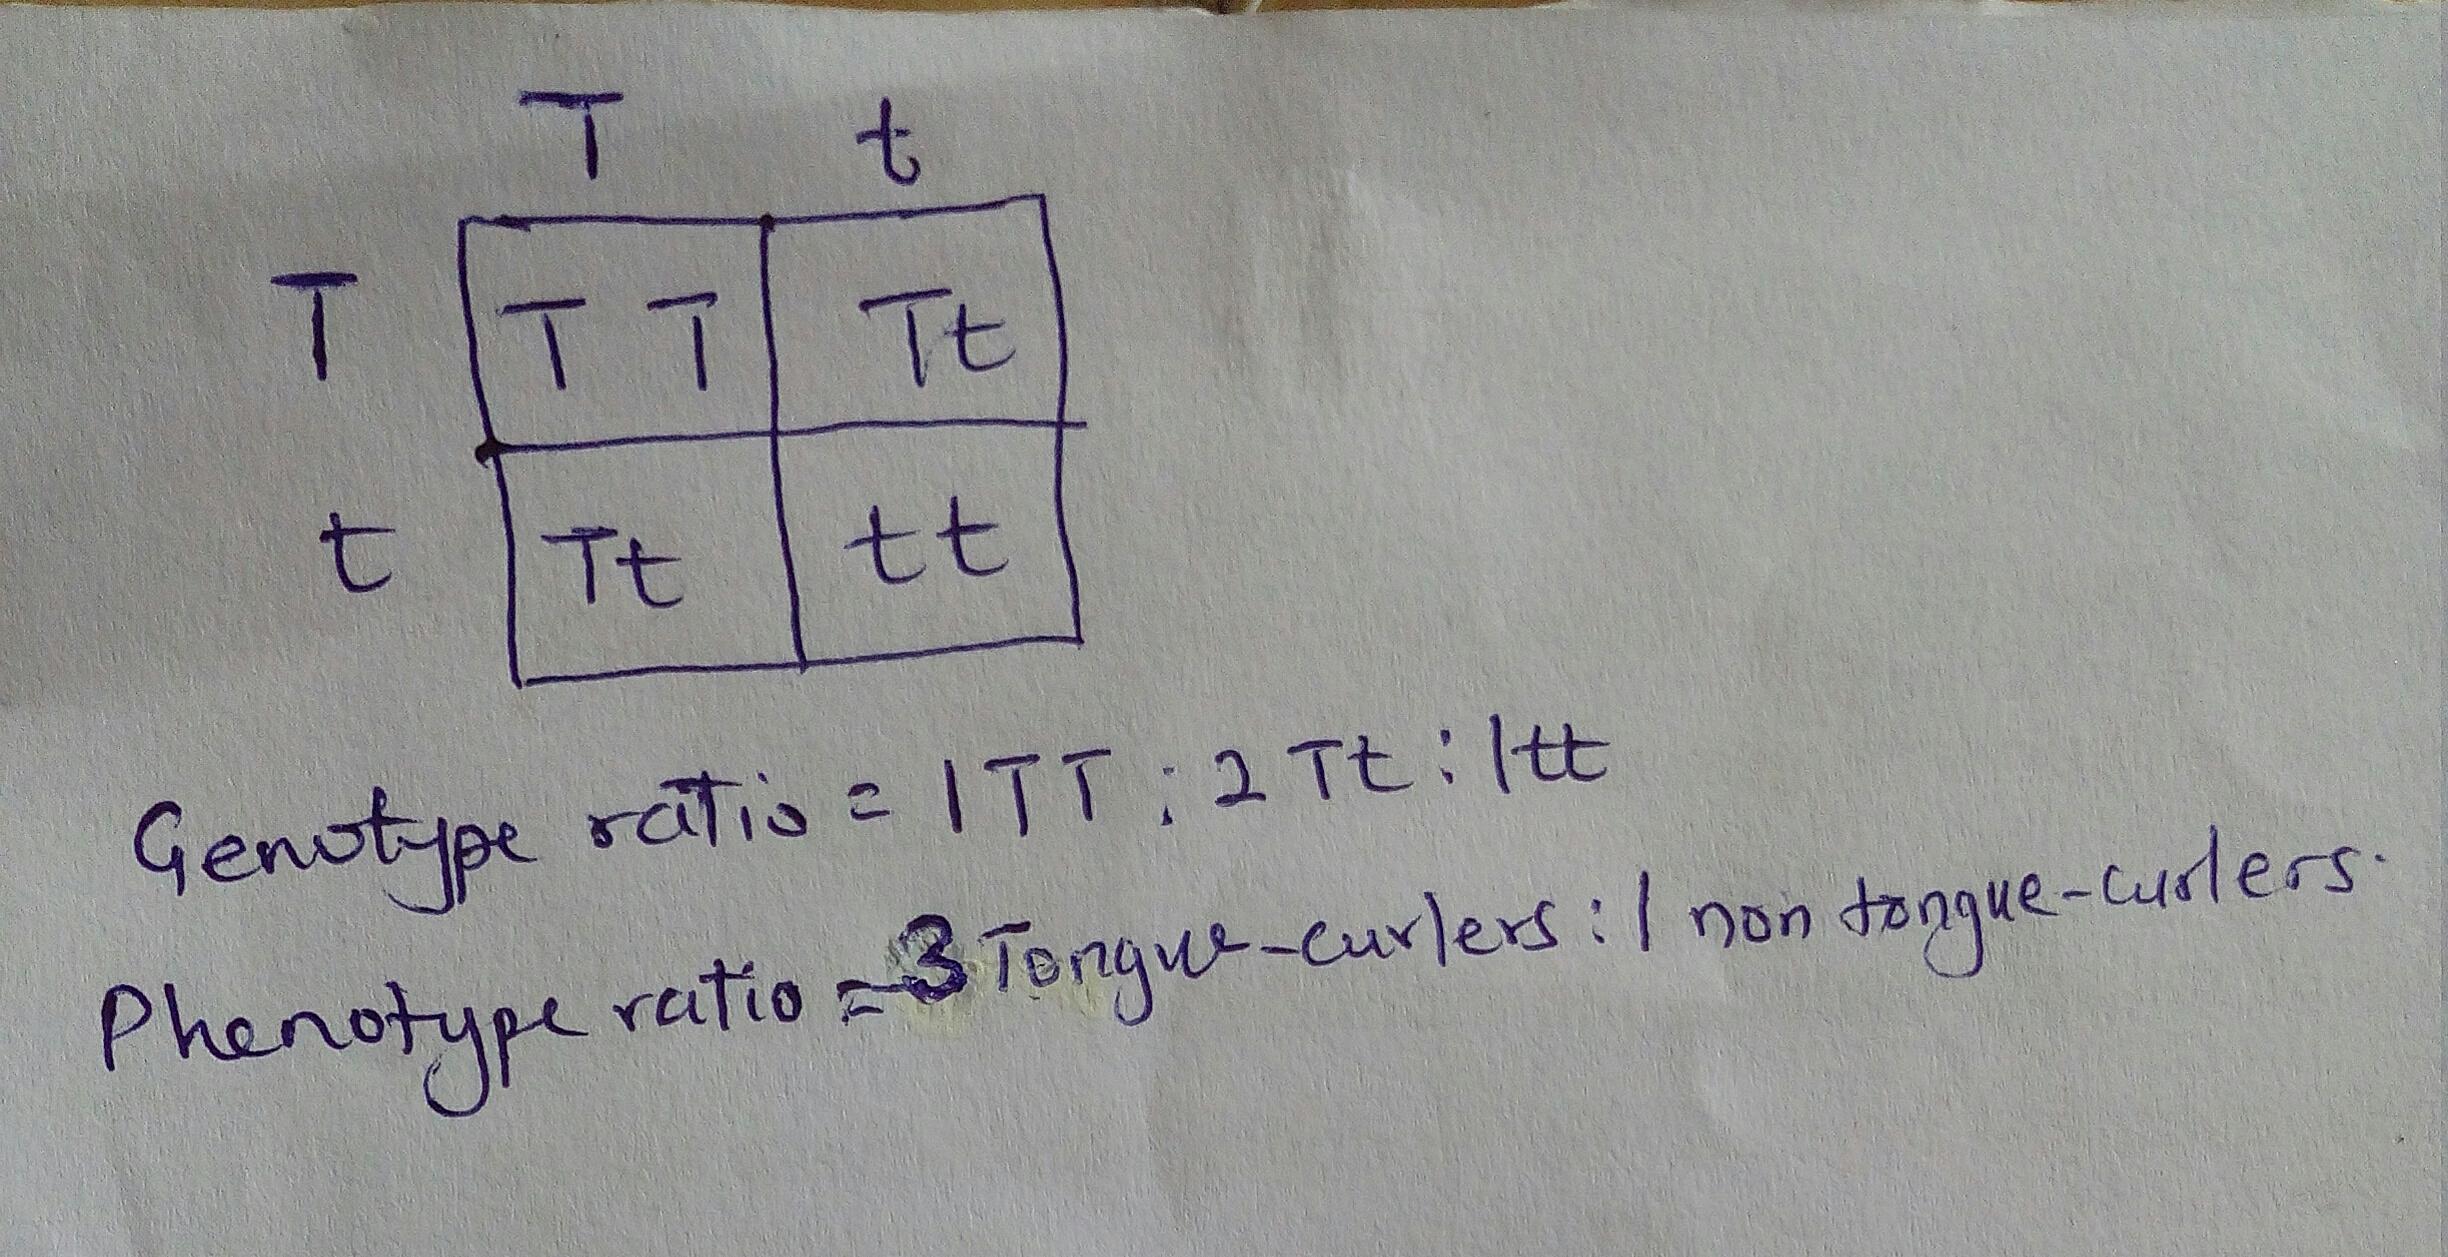 T t
T T T Tt
t Tt tt
Genotype ratio = 1TT : 2 Tt : 1tt
Phenotype ratio = 3 Tongue-curlers : 1 non tongue-curlers.